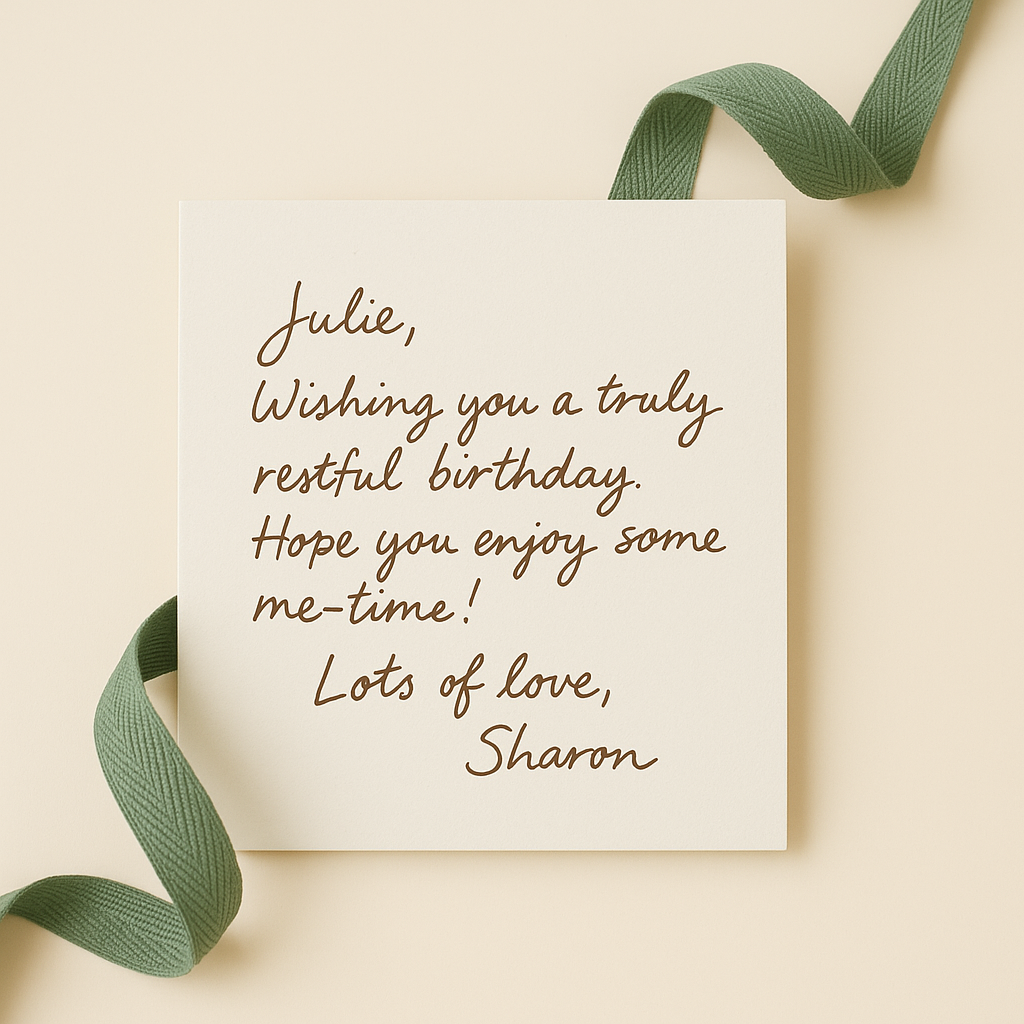 Julie,
Wishing you a truly
restful birthday.
Hope you enjoy some
me-time!
Lots of love,
Sharon